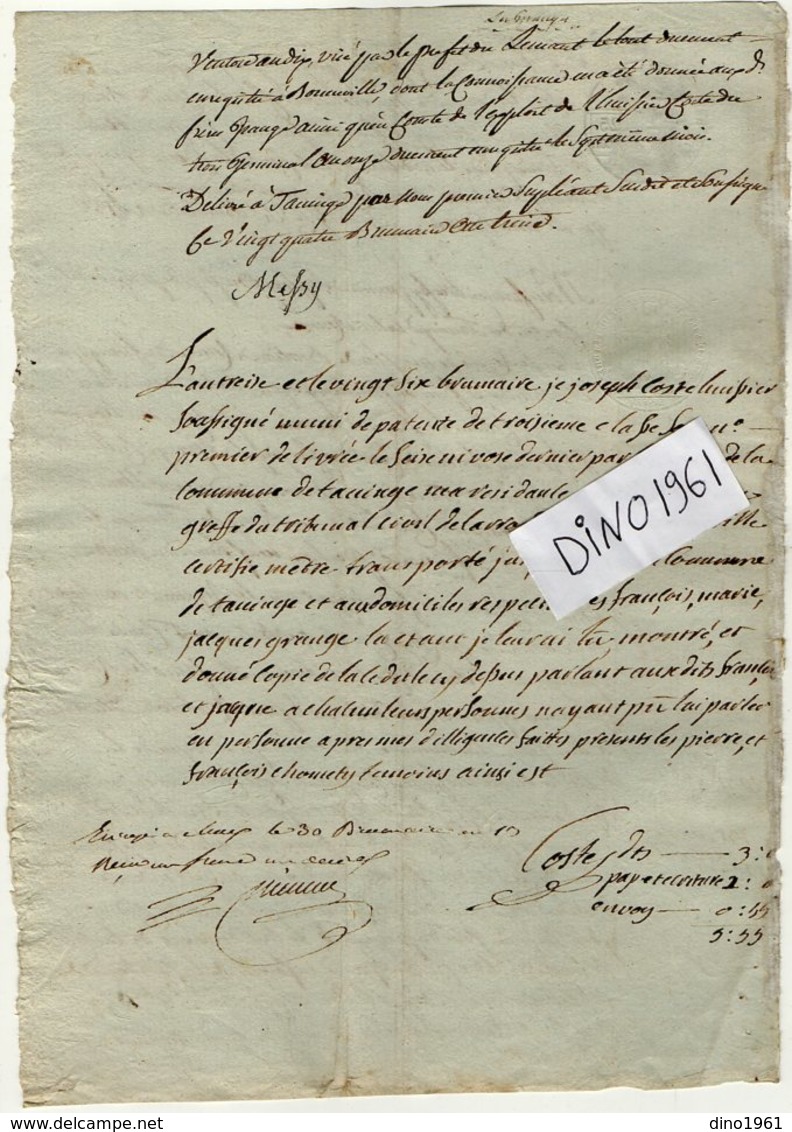 Ventose an dix, visé par le prefet du Leman le tout duement
enregistré à Bonneville, dont la Connoissance m a été donnée aux d.
frère Grange ainsi qu'en Conste de l'exploit de l'huissier Coste du
Germinal an onze duement enregistré le
Delivré à Taninge par Nous premier Supléant Susdit et Soussigné
Ce Vingt quatre Brumaire treize.
Messy
L'an treise et le vingt six brumaire je joseph Coste huissier
Soussigné muni de patente de troisieme classe n.o
premier delivrée le Seise nivose dernier par de la
Commune de taninge ma residante
greffe du tribunal Civil de larro ville
certifie metre transporté jus Commune
de taninge et aux domiciles respec es françois, marie,
jacques grange la etant je leur ai lu, montré, et
donné Copie de la Cedule cy desus parlant aux dits françois
et jaque a chacun leurs personnes nayant pu lui parler
en personne apres mes dilligances faittes presents les pierre, et
françois chometty temoins ainsi est
le 30 Brumaire an 13
Reçu un franc
Coste 3:
pap et ecriture 2:
envoy 0:55
5:55
DINO1961
dino1961